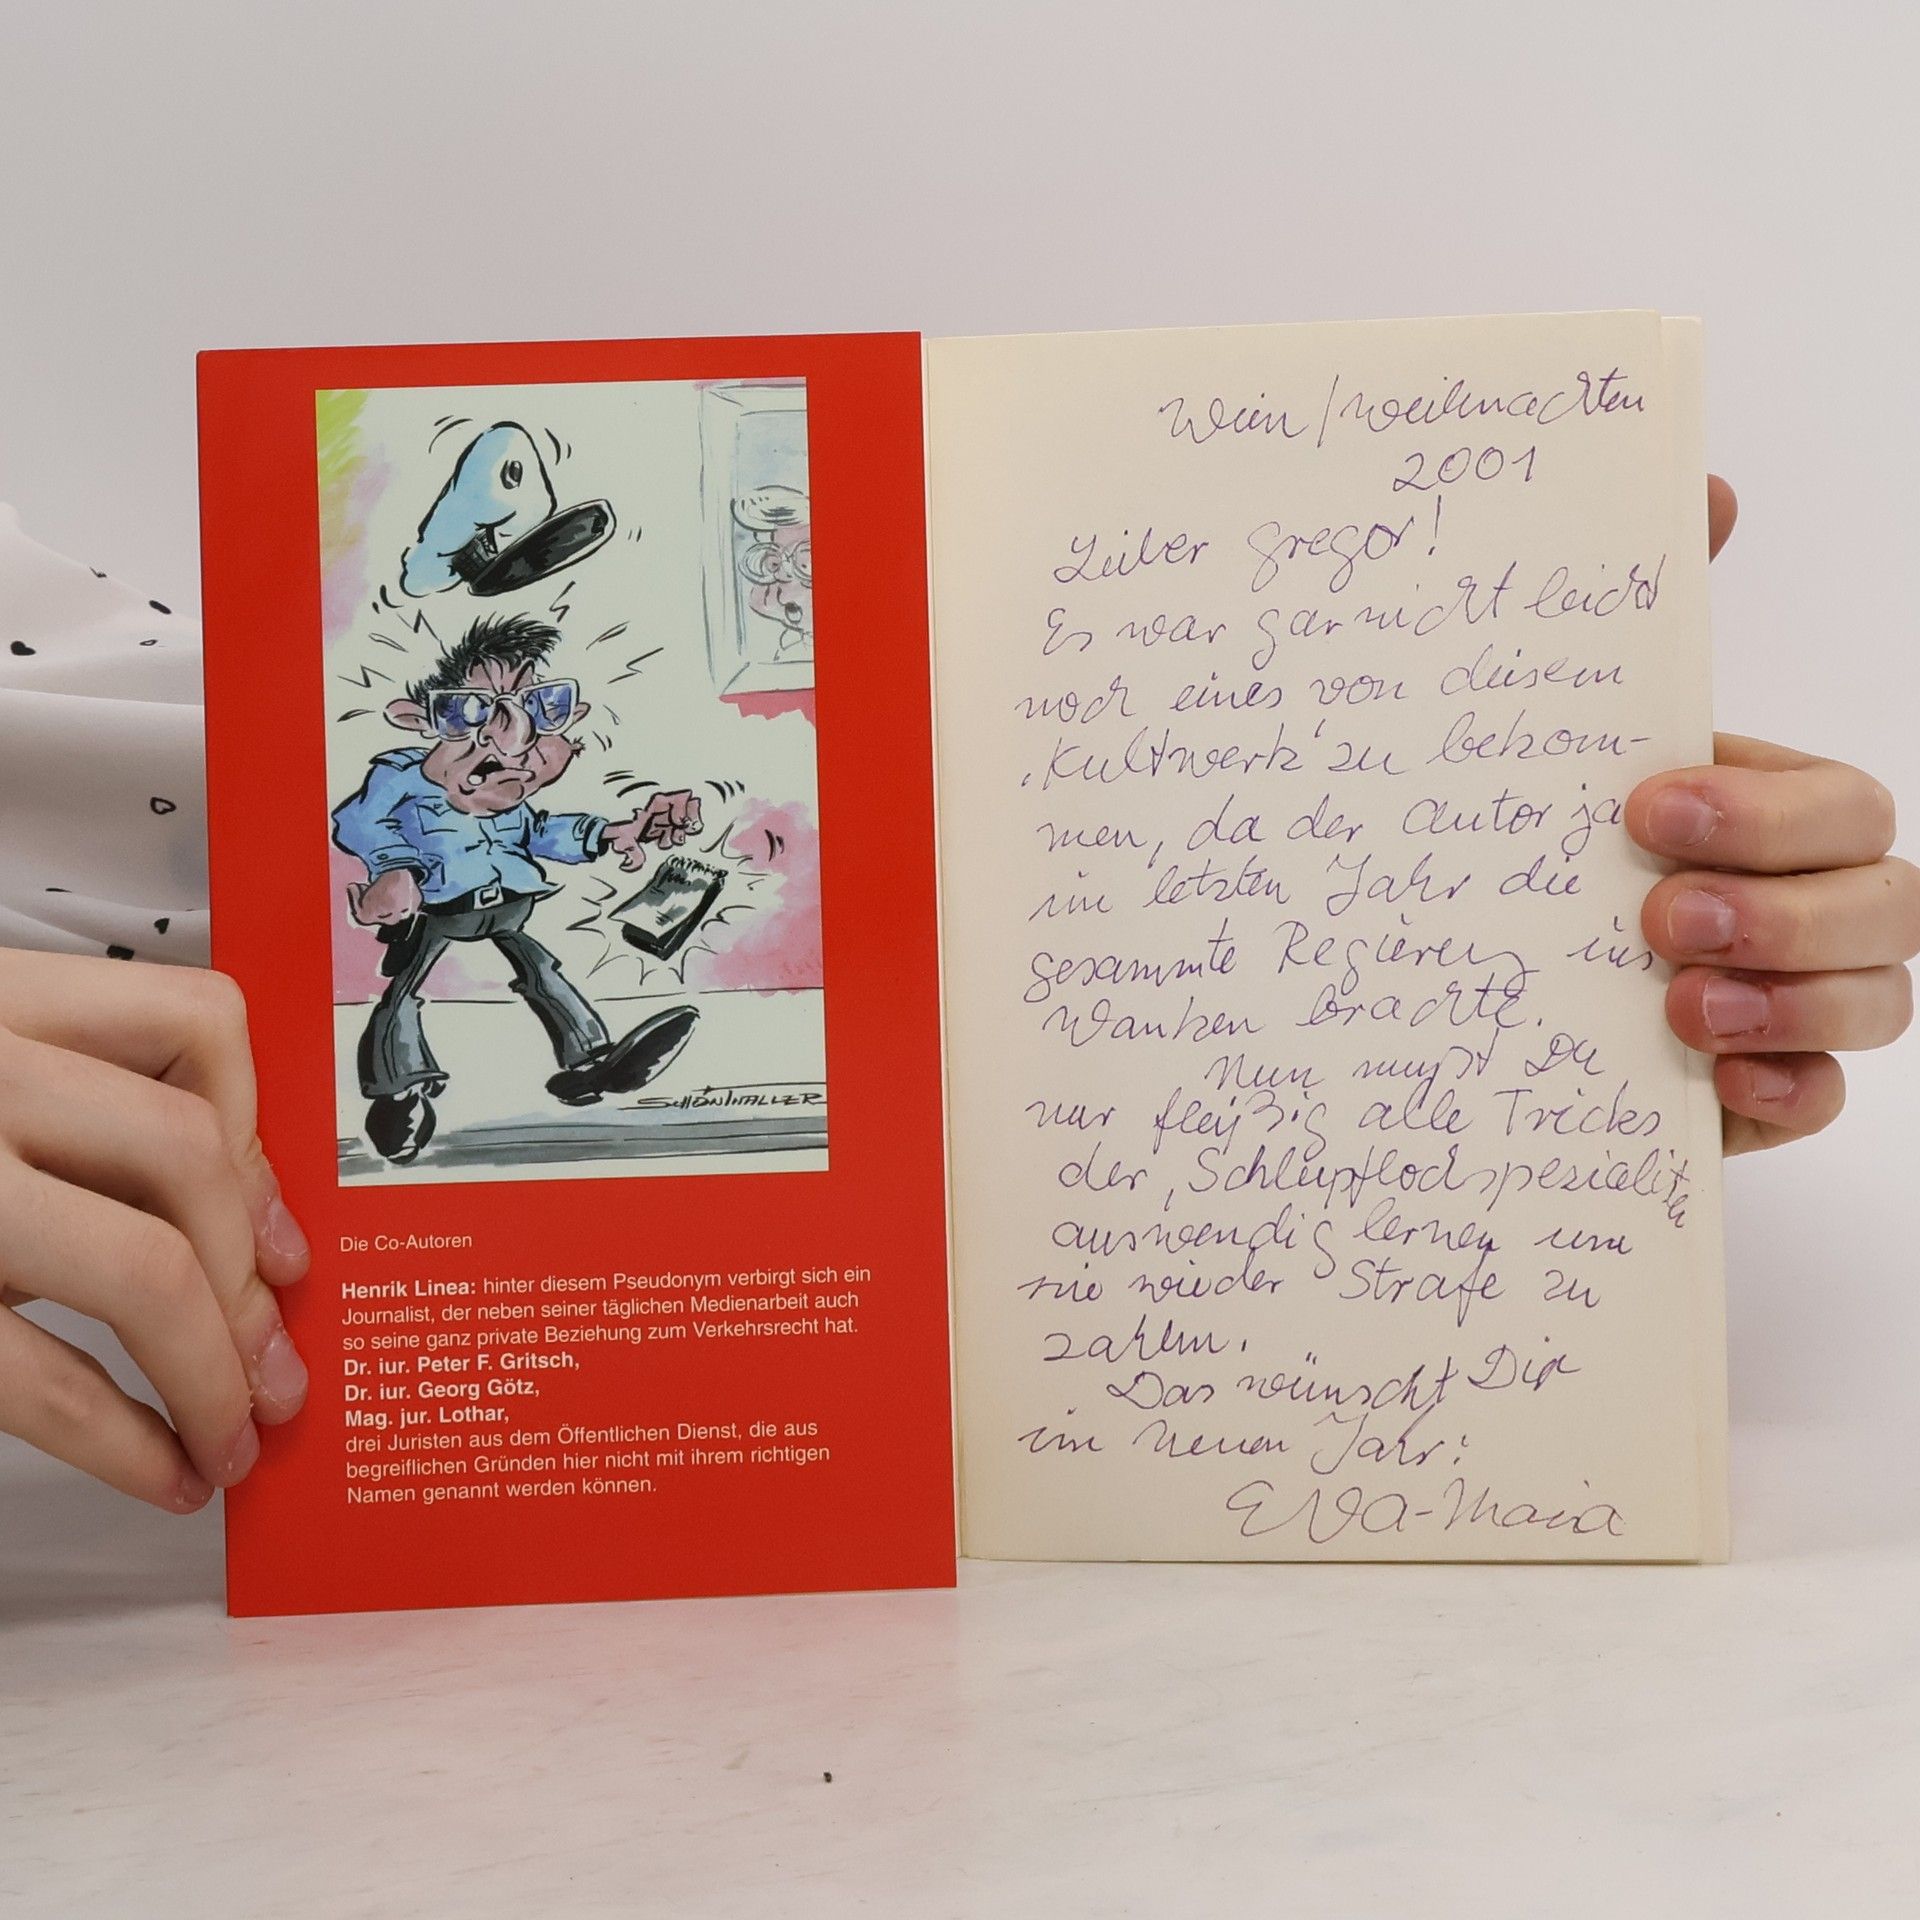 SCHÖNWALLER
Die Co-Autoren
Henrik Linea: hinter diesem Pseudonym verbirgt sich ein
Journalist, der neben seiner täglichen Medienarbeit auch
so seine ganz private Beziehung zum Verkehrsrecht hat.
Dr. iur. Peter F. Gritsch,
Dr. iur. Georg Götz,
Mag. jur. Lothar,
drei Juristen aus dem Öffentlichen Dienst, die aus
begreiflichen Gründen hier nicht mit ihrem richtigen
Namen genannt werden können.
Wien / Weihnachten
2001
Lieber Gregor!
Es war gar nicht leicht
noch eines von diesem
'Kultwerk' zu bekom-
men, da der Autor ja
im letzten Jahr die
gesammte Regierung ins
Wanken brachte.
Nun mußt Du
nur fleißig alle Tricks
der 'Schlupflochspezialisten
auswendig lernen um
nie wieder Strafe zu
zahlen.
Das wünscht Dir
im Neuen Jahr:
Eva-Maria